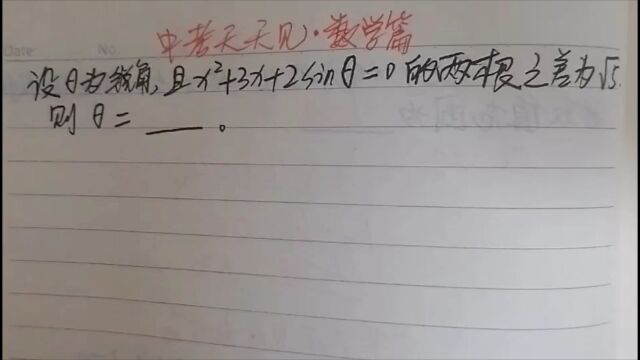 中考天天见·数学篇
Date No
设θ为锐角,且x²+3x+2sinθ=0的两根之差为√5.
则θ=____。